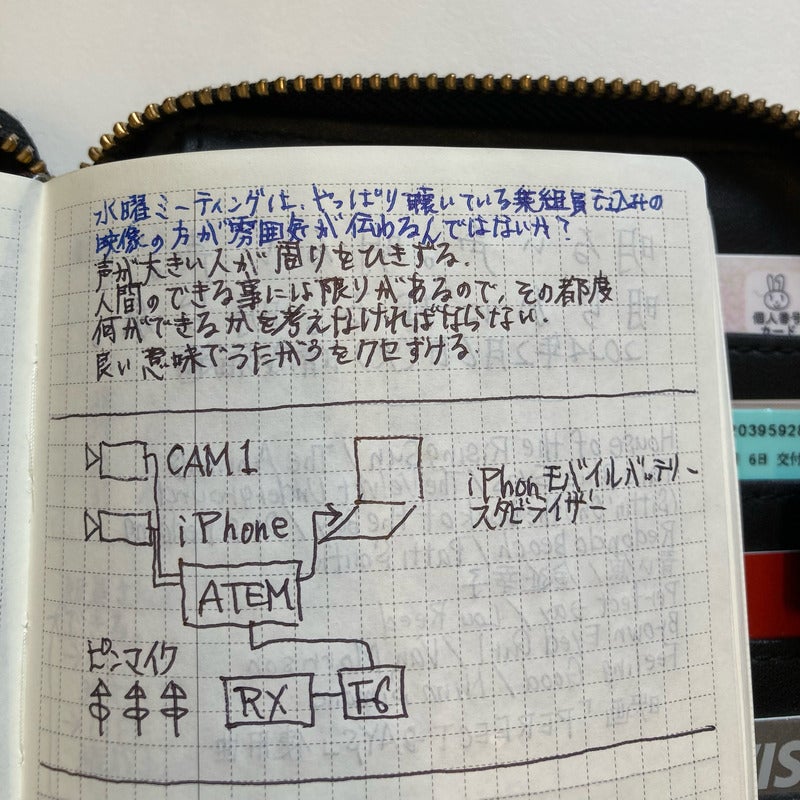 水曜ミーティングは、やっぱり聴いている乗組員も込みの
映像の方が雰囲気が伝わるんではないか?
声が大きい人が周りをひきずる.
人間のできる事には限りがあるので、その都度
何ができるかを考えなければならない.
良い意味でうたがうをクセずける
CAM1
iPhone
iPhonモバイルバッテリー
スタビライザー
ATEM
ピンマイク
RX
F6
個人番号
カード
20395928
6日 交付
VIS